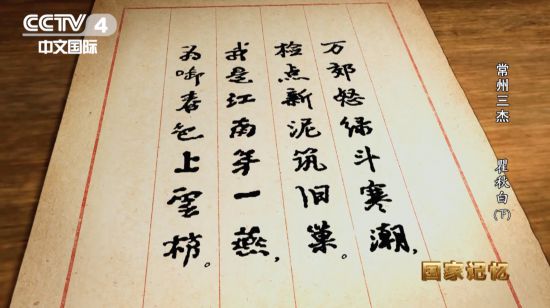 CCTV 4
中文国际
万郊怒绿斗寒潮，
检点新泥筑旧巢。
我是江南第一燕，
为衔春色上云梢。
常州三杰 瞿秋白(下)
国家记忆